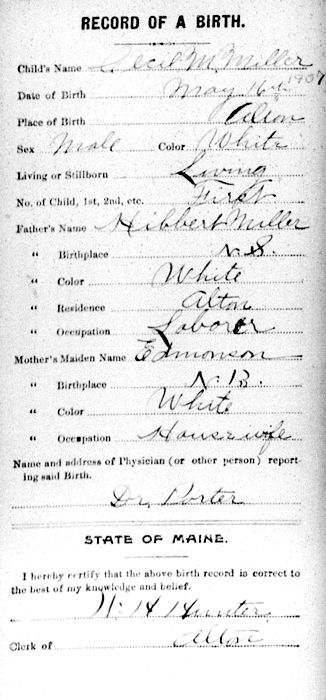 RECORD OF A BIRTH.
Child's Name Cecil M. Miller
Date of Birth May 16th 1907
Place of Birth Alton
Sex Male Color White
Living or Stillborn Living
No. of Child, 1st, 2nd, etc. First
Father's Name Hibbert Miller
" Birthplace N. S.
" Color White
" Residence Alton
" Occupation Laborer
Mother's Maiden Name Edmonson
" Birthplace N. B.
" Color White
" Occupation Housewife
Name and address of Physician (or other person) report-
ing said Birth.
Dr. Porter
STATE OF MAINE.
I hereby certify that the above birth record is correct to
the best of my knowledge and belief.
W. H. Hunter
Clerk of Alton